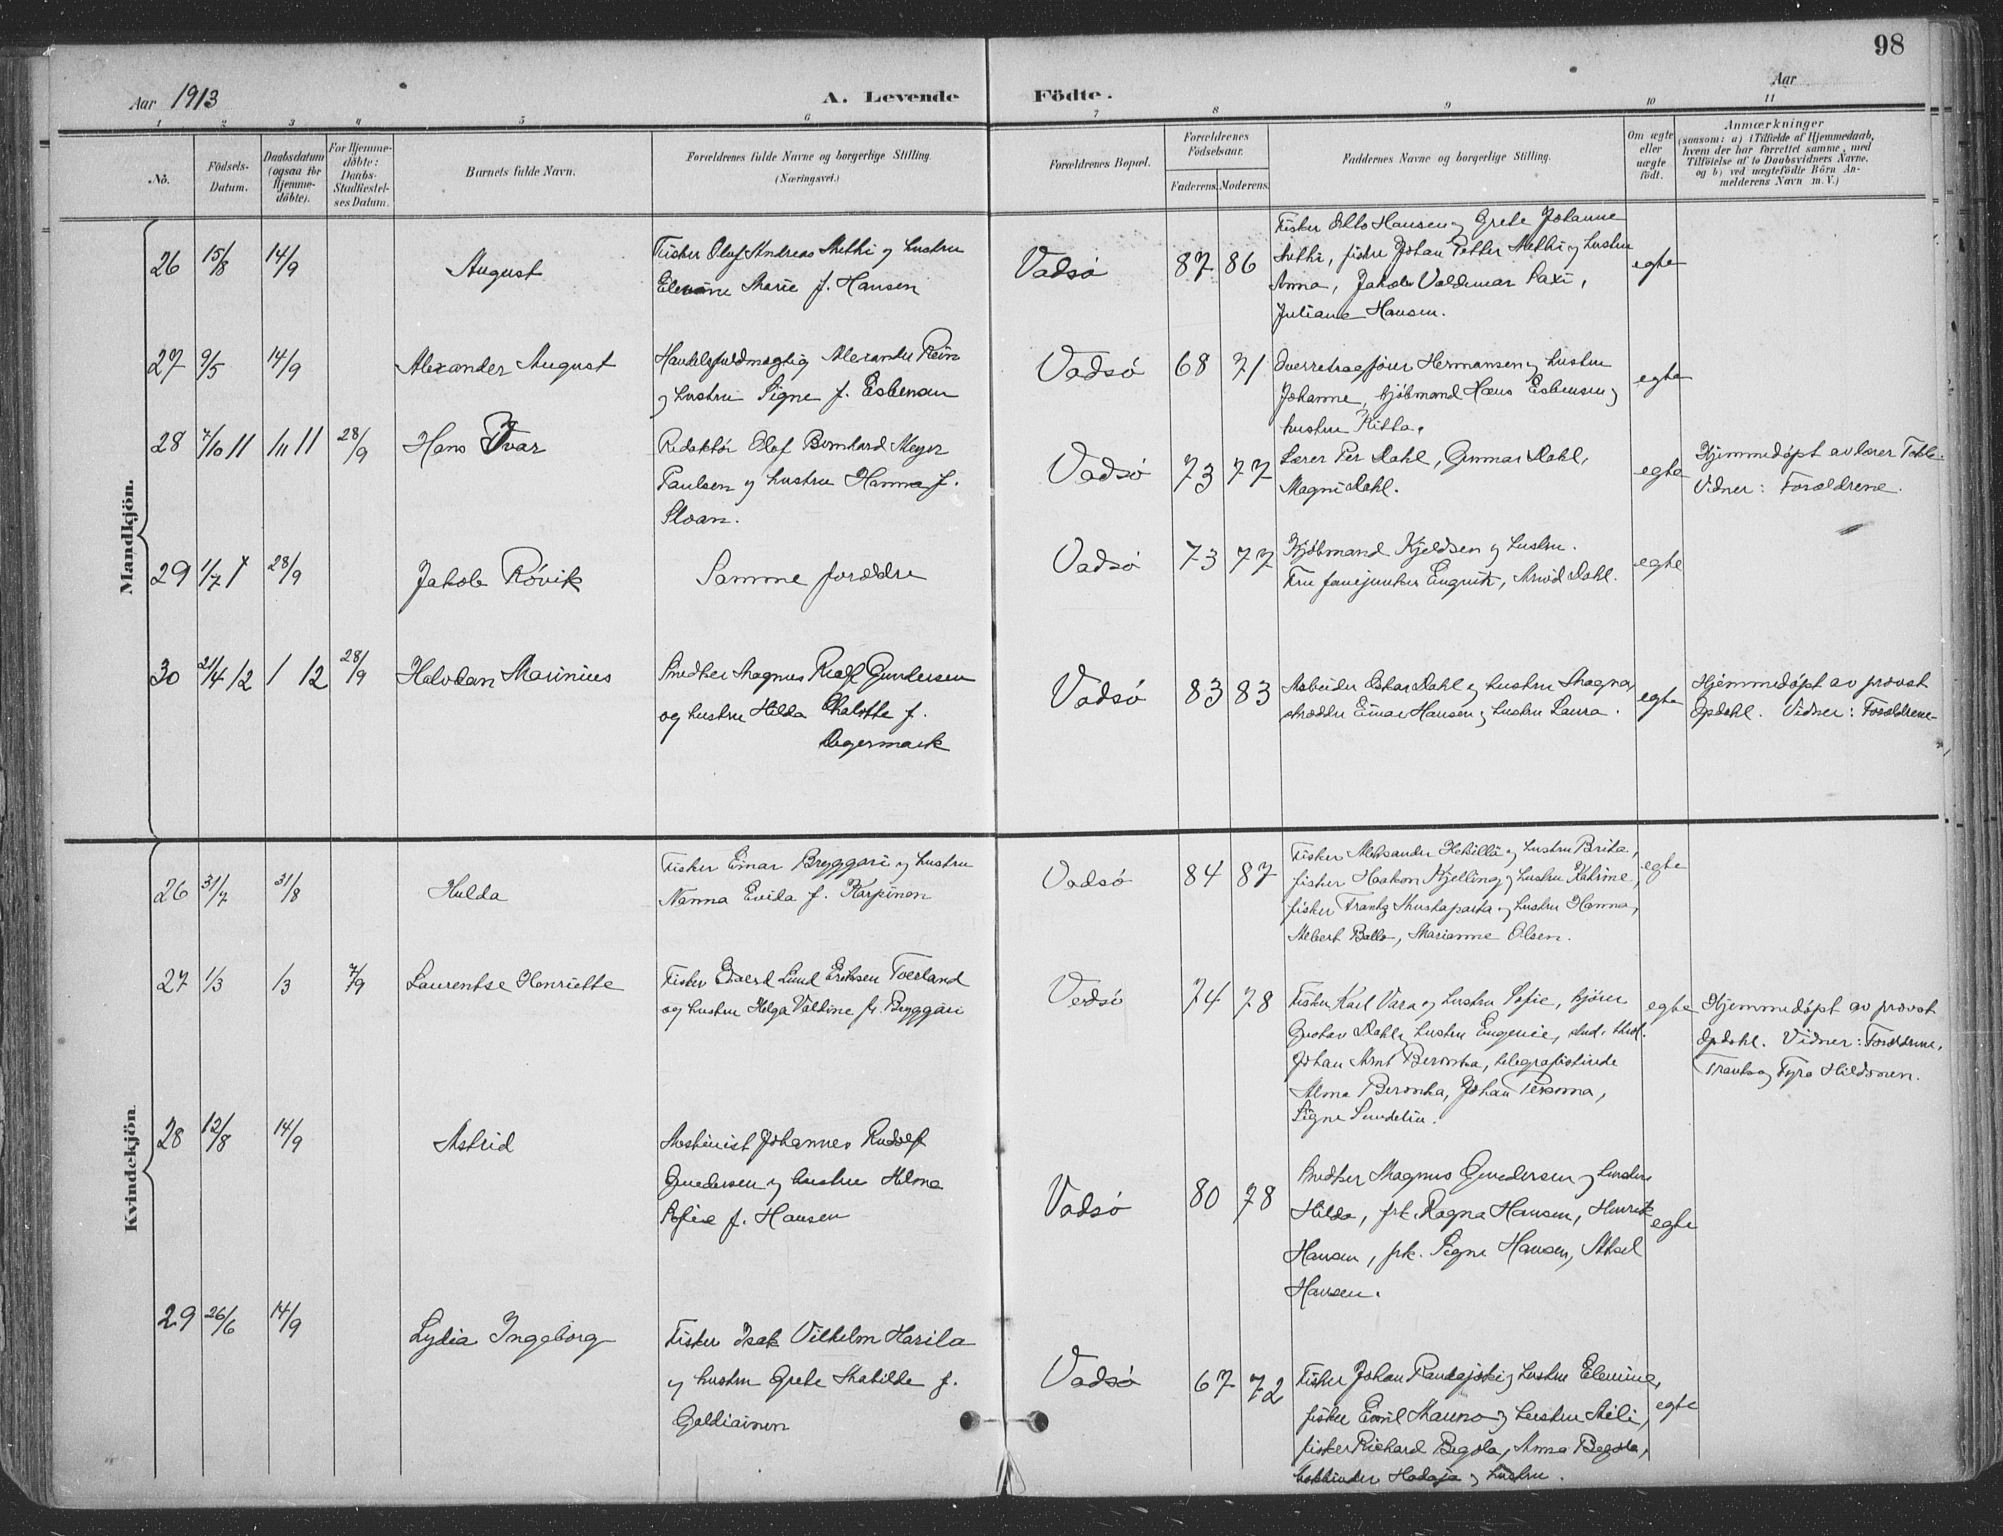 98
Aar 1913
A. Levende
Födte.
Aar
1 2 3 4 5 6 7 8 9 10 11
No.
Födsels-
Datum.
Daabsdatum
(ogsaa for
Hjemme-
döbte).
For Hjemme-
döbte:
Daabs-
Stadfæstel-
ses Datum.
Barnets fulde Navn.
Forældrenes fulde Navne og borgerlige Stilling.
(Næringsvei.)
Forældrenes Bopæl.
Forældrenes
Födselsaar.
Faderens.
Moderens.
Faddernes Navne og borgerlige Stilling.
Om ægte
eller
uægte
födt.
Anmærkninger
(saasom: a) i Tilfælde af Hjemmedaab,
hvem der har forrettet samme, med
Tilföielse af to Daabsvidners Navne.
og b) ved uægtefödte Börn An-
melderens Navn m. V.)
Mandkjön.
26 15/8 14/9
August
Fisker Oluf Andreas Methi og hustru
Marie f. Hansen
Vadsö
87 86
Fisker Hansen og Grete Johanne
Methi, fisker Johan Petter Methi og hustru
Anna, Jakob Valdemar Paxi,
Juliane Hansen.
egte
27 9/5 14/9
Alexander August
Handelsfuldmægtig Alexander Rein
og hustru Signe f. Esbensen
Vadsö
68 71
Overretssagförer Hermansen og hustru
Johanne, kjöbmand Hans Esbensen og
hustru Kitta.
egte
28 7/10 11 /11 11 28/9
Hans Ivar
Redaktör Olaf Bernhard Meyer
Paulsen og hustru Hanna f.
Sloan.
Vadsö
73 77
Lærer Per Dahl, Gunnar Dahl,
Magni Dahl.
egte
Hjemmedöpt av lærer
Vidner: Forældrene.
29 1/7 28/9
Jakob Rövik
Samme forældre
Vadsö
73 77
Kjöbmand Kjeldsen og hustru.
Fru fanejunker Enquist, Arvid Dahl.
egte
30 21/4 12 / 12 28/9
Halvdan Marinius
Snedker Magnus Rudolf Gundersen
og hustru Hilda Chalotte f.
Degermark
Vadsö
83 83
Arbeider Oskar Dahl og hustru Magna,
skrædder Einar Hansen og hustru Laura.
egte
Hjemmedöpt av provst
Opdahl. Vidner: Forældrene
Kvindekjön.
26 31/7 31/8
Hulda
Fisker Einar Bryggari og hustru
Nanna Evida f. Karpinen
Vadsö
84 87
Fisker Aleksander Heikillä og hustru Brita,
fisker Haakon Kjelling og hustru Katrine,
fisker Frantz Mustaparta og hustru Hanna,
Albert Ballo, Marianne Olsen.
egte
27 1/3 /3 7/9
Laurentse Henriette
Fisker Edvard Lund Eriksen Tverland
og hustru Helga Valtine f. Bryggari
Vadsö
74 78
Fisker Karl Vara og hustru Sofie, kjörer
Gustav Dahl og hustru Eugenie, stud. theol.
Johan Arnt Beronka, telegrafistinde
Alma Beronka, Johan
Signe Sundelin.
egte
Hjemmedöpt av provst
Opdahl. Vidner: Forældrene,
og Fyra Hildonen.
28 12/8 14/9
Astrid
Maskinist Johannes Rudolf
Gundersen og hustru Helma
Sofie f. Hansen
Vadsö
80 78
Snedker Magnus Gundersen og hustru
Hilda, frk. Ragna Hansen, Henrik
Hansen, frk. Signe Hansen, Aksel
Hansen.
egte
29 26/6 14/9
Lydia Ingeborg
Fisker Isak Vilhelm Harila
og hustru Grete Matilde f.
Galdiainen
Vadsö
67 72
Fisker Johan Randajski og hustru Elemine,
fisker Emil Mauno og hustru Meli,
fisker Richard Begola, Anna Begola,
bokbinder Hadaja og hustru.
egte